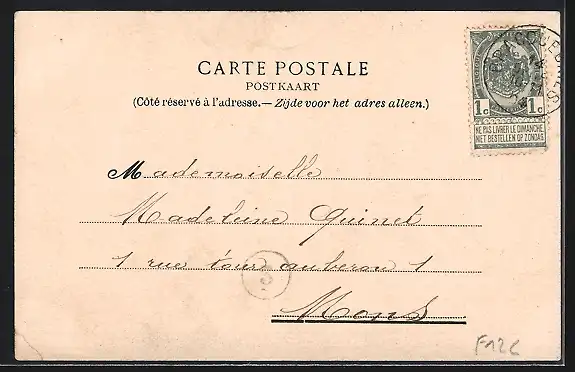 CARTE POSTALE
POSTKAART
(Côté réservé à l'adresse.—Zijde voor het adres alleen.)
1c 1c
NE PAS LIVRER LE DIMANCHE
NIET BESTELLEN OP ZONDAG
Mademoiselle
Madeleine Quinet
1 rue tour auberon 1
Mons
3
F12C